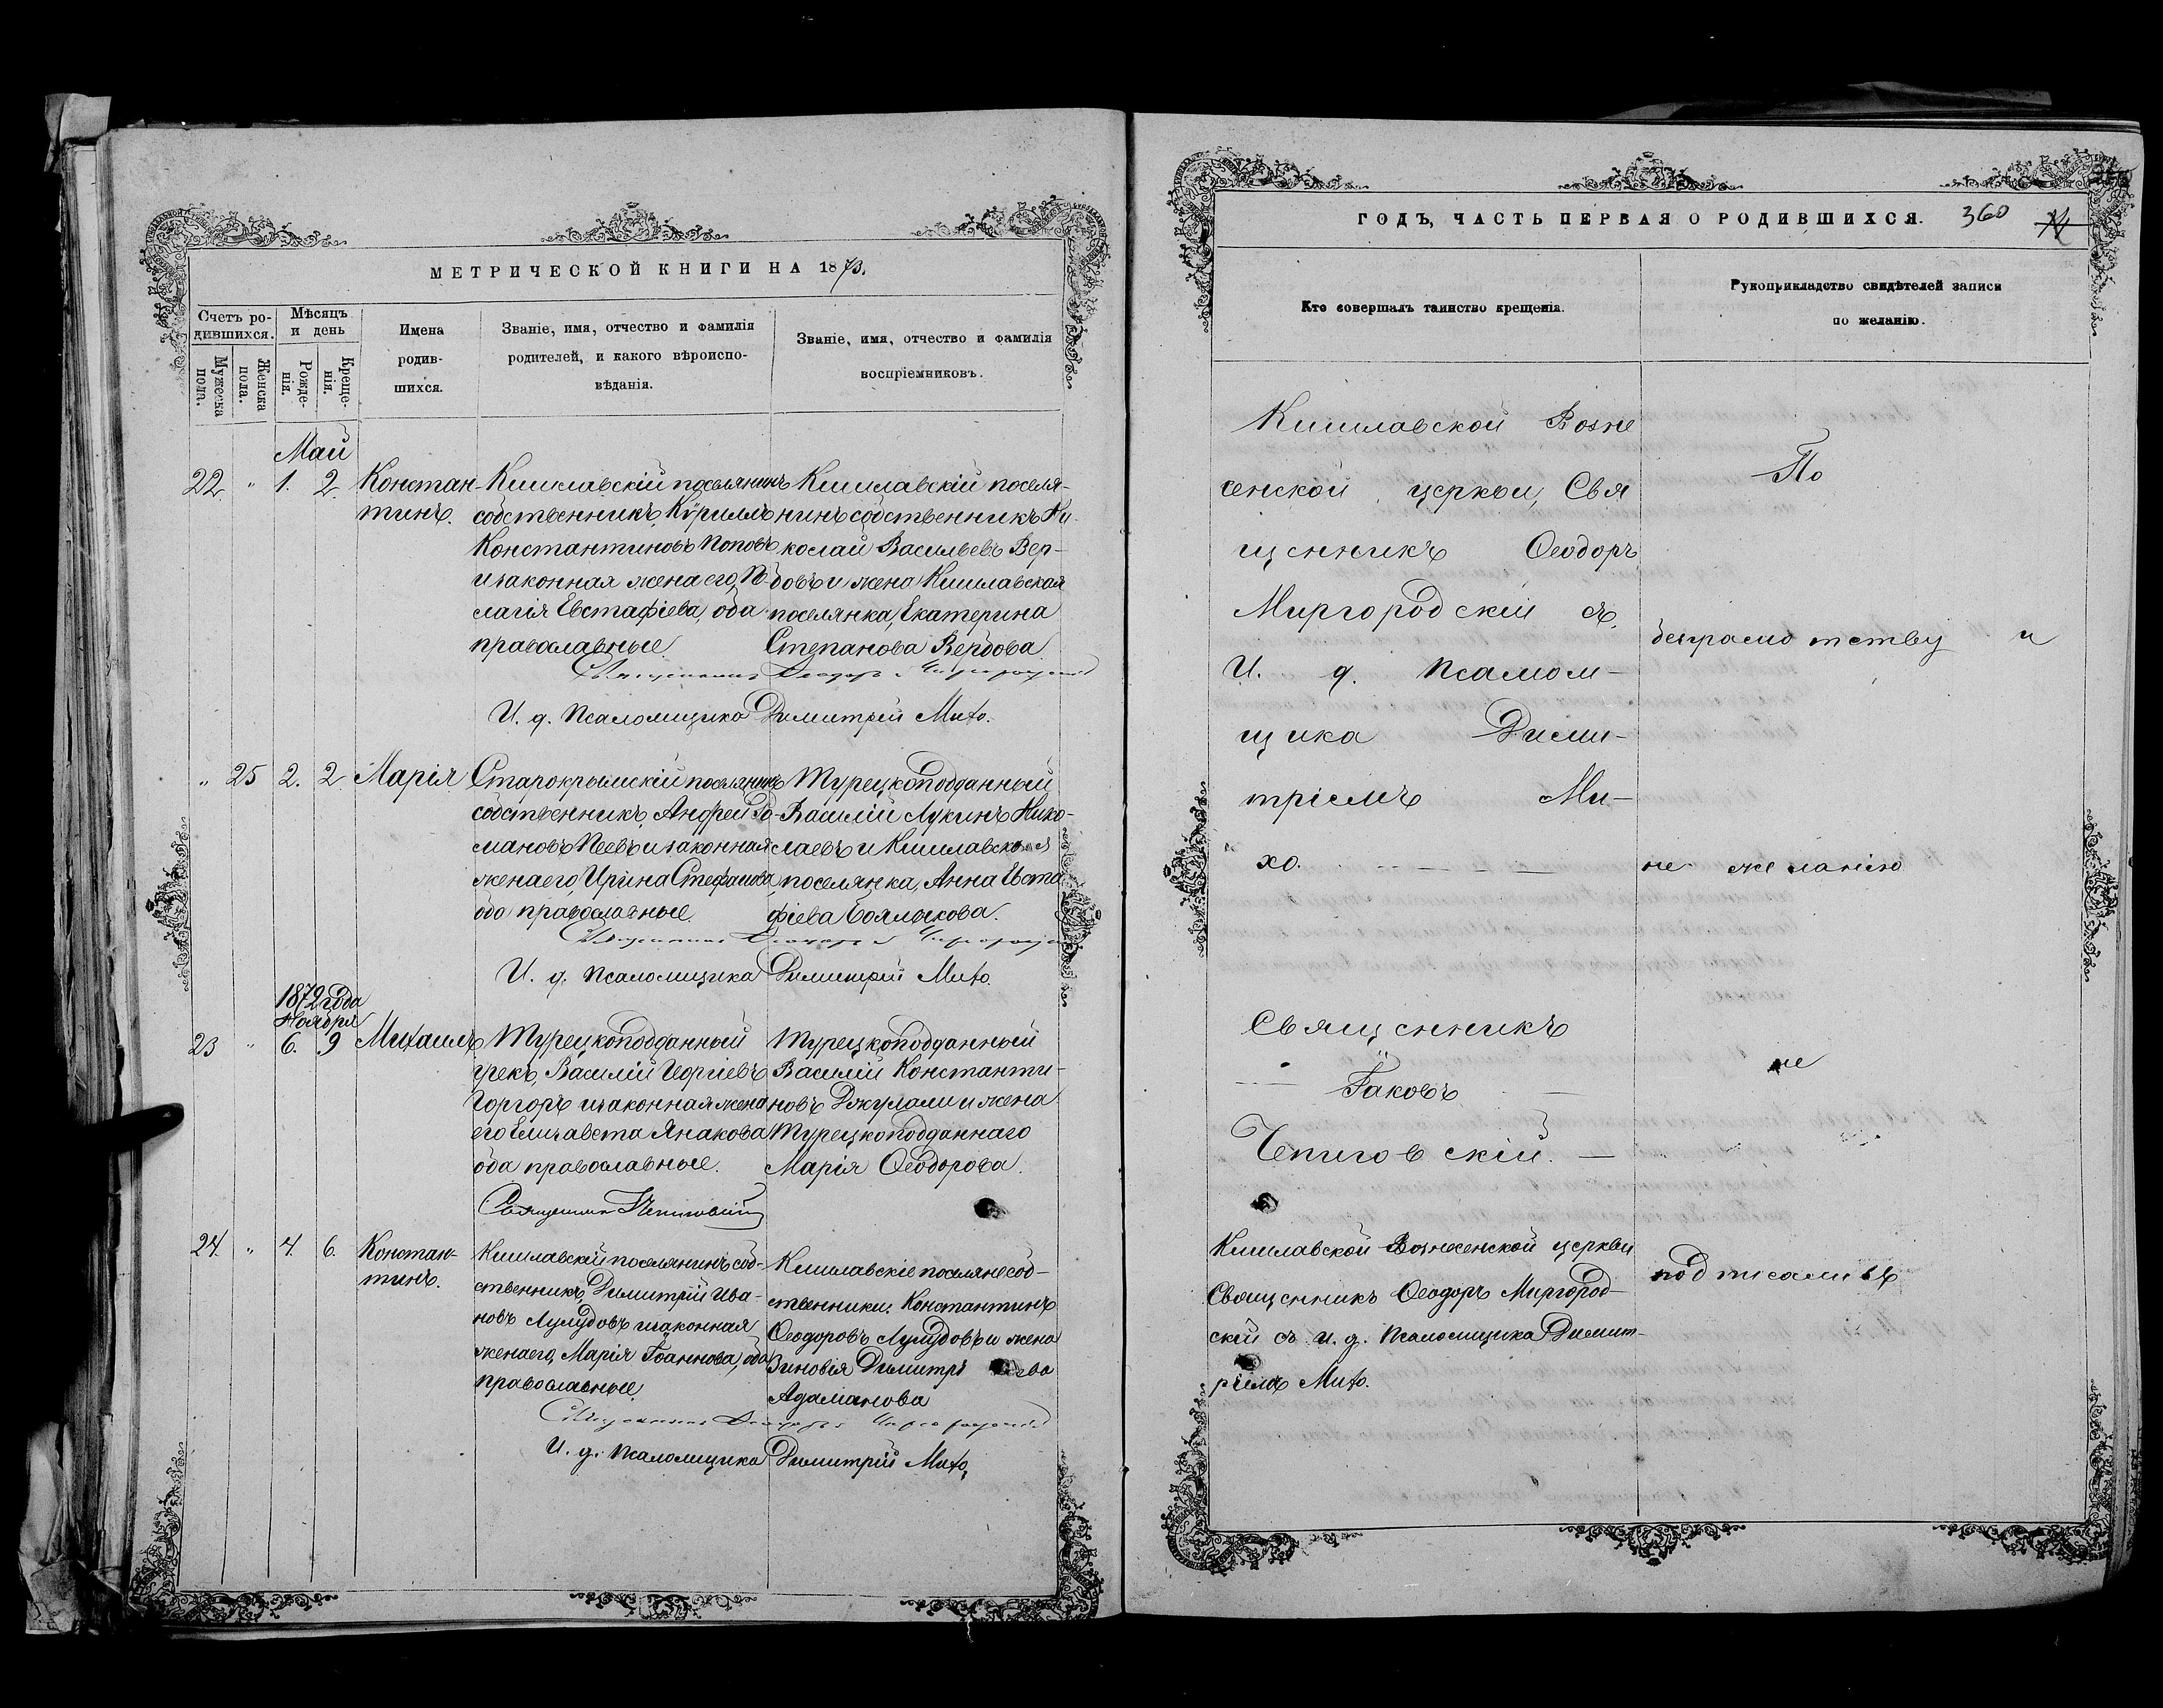 МЕТРИЧЕСКОЙ КНИГИ НА 1873.
Счетъ ро-
дившихся.
Мужеска
пола.
Женска
пола.
Мѣсяцъ
и день
Рожде-
нія.
Креще-
нія.
Имена
родив-
шихся.
Званіе, имя, отчество и фамилія
родителей, и какого вѣроиспо-
вѣданія.
Званіе, имя, отчество и фамилія
воспріемниковъ.
Май
22. " 1. 2.
Констан-
тинъ.
Кишлавскій поселянинъ
собственникъ, Кѵриллъ
Константиновъ Поповъ
и законная жена его, Пе-
лагія Евстафіева, оба
православные.
Кишлавскій поселя-
нинъ собственникъ Ни-
колай Васильевъ Вер-
довъ и жена Кишлавская
поселянка, Екатерина
Степанова Вердова
Священникъ Ѳеодоръ Миргородскій
И. д. Псаломщика Димитрій Михо.
" 25 2. 2.
Марія
Старокрымскій поселянинъ
собственникъ, Андрей Ро-
мановъ Пеевъ и законная
жена его, Ирина Стефанова
оба православные.
Турецкоподданный
Василій Лукинъ Нико-
лаевъ и Кишлавская
поселянка, Анна Евста
фіева Боялыкова.
Священникъ Ѳеодоръ Миргородскій
И. д. Псаломщика Димитрій Михо.
1872 года
Ноября
23 " 6. 9
Михаилъ
Турецкоподданный
грекъ, Василій Георгіевъ
Горгоръ и законная жена
его Елисавета Янакова
оба православные.
Турецкоподданный
Василій Константи-
новъ Джулами и жена
Турецкоподданнаго
Марія Ѳеодорова.
Священникъ Чепиговскій
24. " 4. 6.
Констан-
тинъ.
Кишлавскій поселянинъ соб-
ственникъ, Димитрій Ива-
новъ Лулудовъ и законная
жена его, Марія Іоаннова, оба
православные.
Кишлавскіе поселяне соб-
ственники: Константинъ
Ѳеодоровъ Лулудовъ и жена
Зиновія Димитрі ева
Адаманова
Священникъ Ѳеодоръ Миргородскій
И. д. Псаломщика Димитрій Михо,
ГОДЪ, ЧАСТЬ ПЕРВАЯ О РОДИВШИХСЯ. 360
Кто совершалъ таинство крещенія.
Рукоприкладство свидѣтелей записи
по желанію.
Кишлавской Возне
сенской церкви, Свя
щенникъ Ѳеодоръ
Миргородскій съ
И. д. Псалом-
щика Дими-
тріемъ Ми-
хо.
По
безграмотству и
не желанію
Священникъ
Іаковъ
Чепиговскій.
не
Кишлавской Вознесенской церкви
Священникъ Ѳеодоръ Миргород-
скій съ и. д. Псаломщика Димит-
ріемъ Михо.
подписались